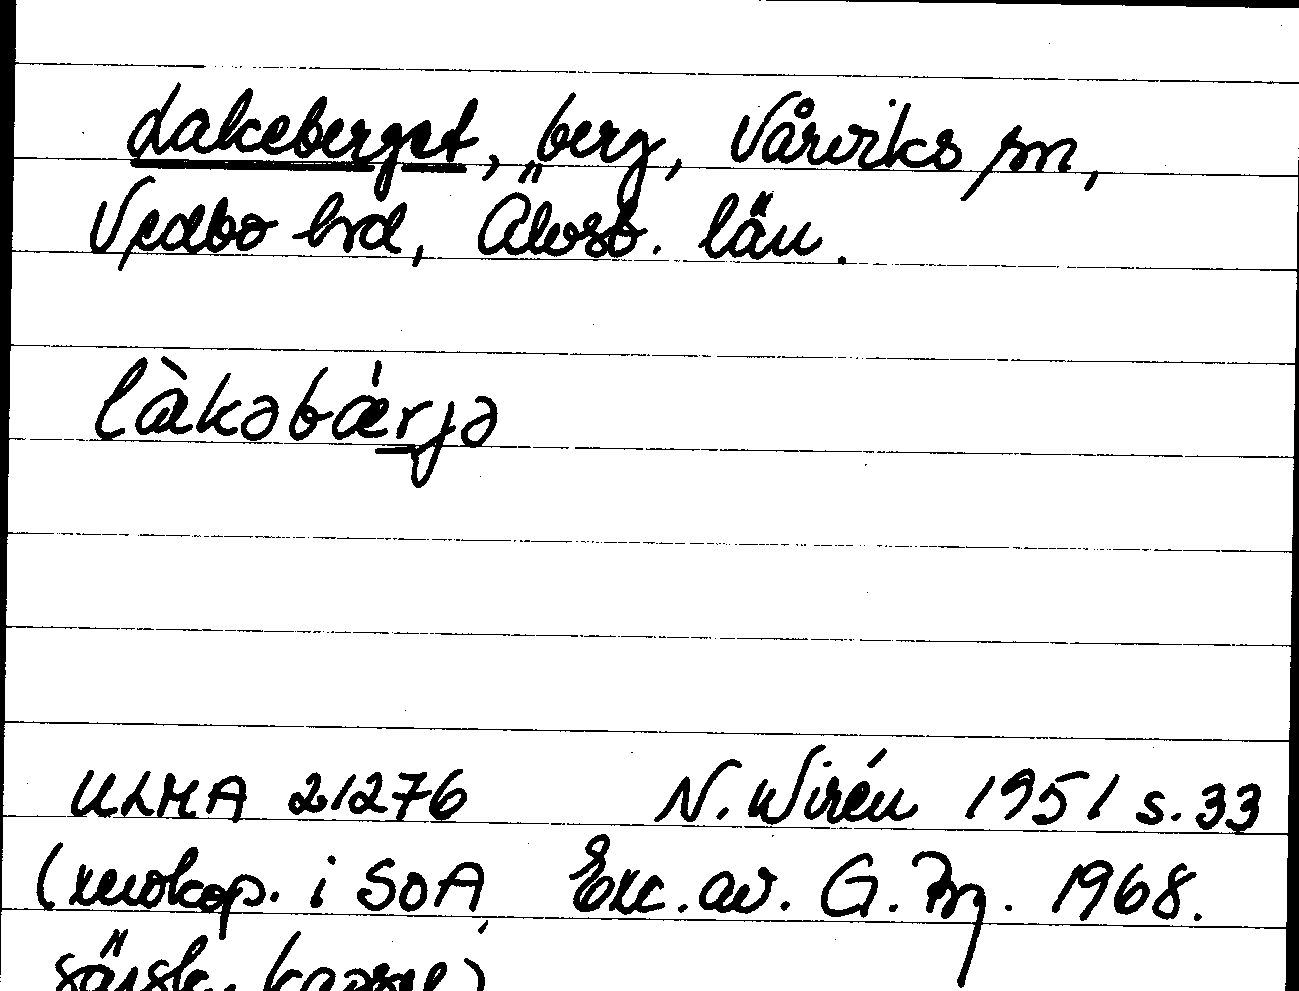 Lakeberget, berg, Vårviks sn,
Vedbo hd, Älvsb. län.
làkəbǽrjə
ULMA 21276 N. Wirén 1951 s. 33
(xerokop. i SOA, Exc. av. G. 1968.
särsk. kapsel)